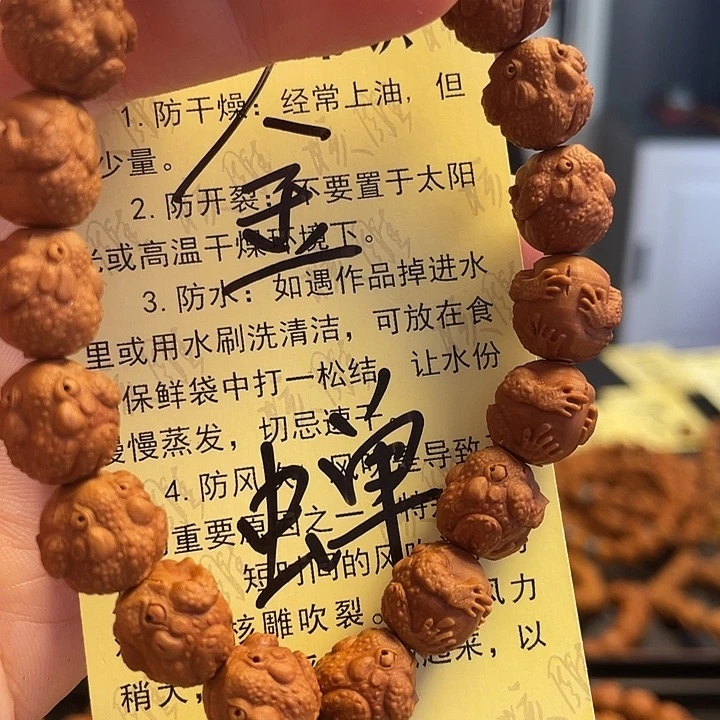 1.防干燥：经常上油，但
少量。
金
2.防开裂：不要置于太阳
光或高温干燥环境下。
3.防水：如遇作品掉进水
里或用水刷洗清洁，可放在食
保鲜袋中打一松结，让水份
慢慢蒸发，切忌速干
蝉
4.防风 风 导致
重要原因之一
短时间的风吹
核雕吹裂。 风力
稍大， 起来，以